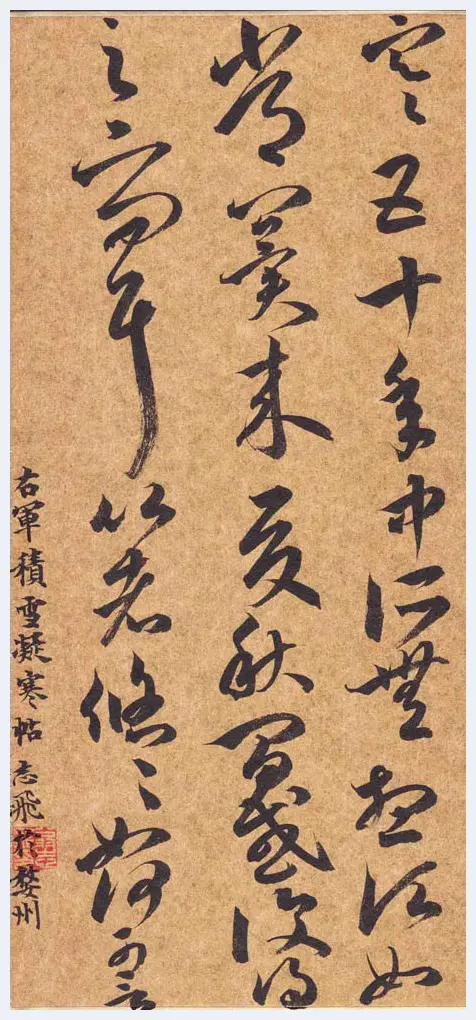 寒五十年中所無想頃如
常冀来夏秋間或復得
足下問耳比者悠〻如何可言
右軍積雪凝寒帖志飛於婺州